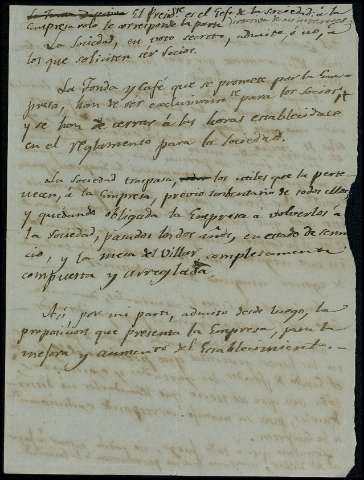 El Presidte. es el Gefe de la Sociedad; á la
Empresa solo le corresponde la parte directiva de sus intereses.
La Sociedad, en voto secreto, admite, ó no, a
los que soliciten sér Socios.
La Fonda y Café que se promete por la Em-
presa, han de ser exclusivamte. para los Socios,
y se han de cerrar á las horas establecidas
en el reglamento para la Sociedad.
La Sociedad traspasa, los utiles que la perte-
necen, á la Empresa, previo inventario de todos ellos
y quedando obligada la Empresa a volverlos á
la Sociedad, pasados los dos años, en estado de servi-
cio, y la mesa del Villar completamente
compuesta y arreglada.
Asi, por mi parte, admito desde luego, la
proposicion que presenta la Empresa, para la
mejora y aumento del Establecimiento.